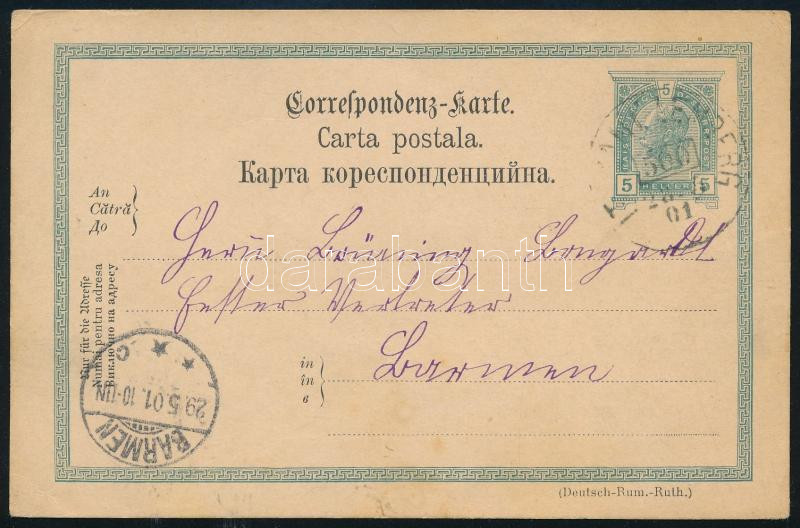 Correspondenz-Karte.
Carta postala.
Карта кореспонденцийна.
5
KAIS. KÖN. OESTERR. POST
5 HELLER 5
01
An
Cătră
До
Nur für die Adresse
Numai pentru adresa
Виключно на адресу
Herrn Brüning Bongardt
Vertreter
in
în
в
Barmen
BARMEN
29.5.01.10-11N.
* * C
darabanth
(Deutsch-Rum.-Ruth.)